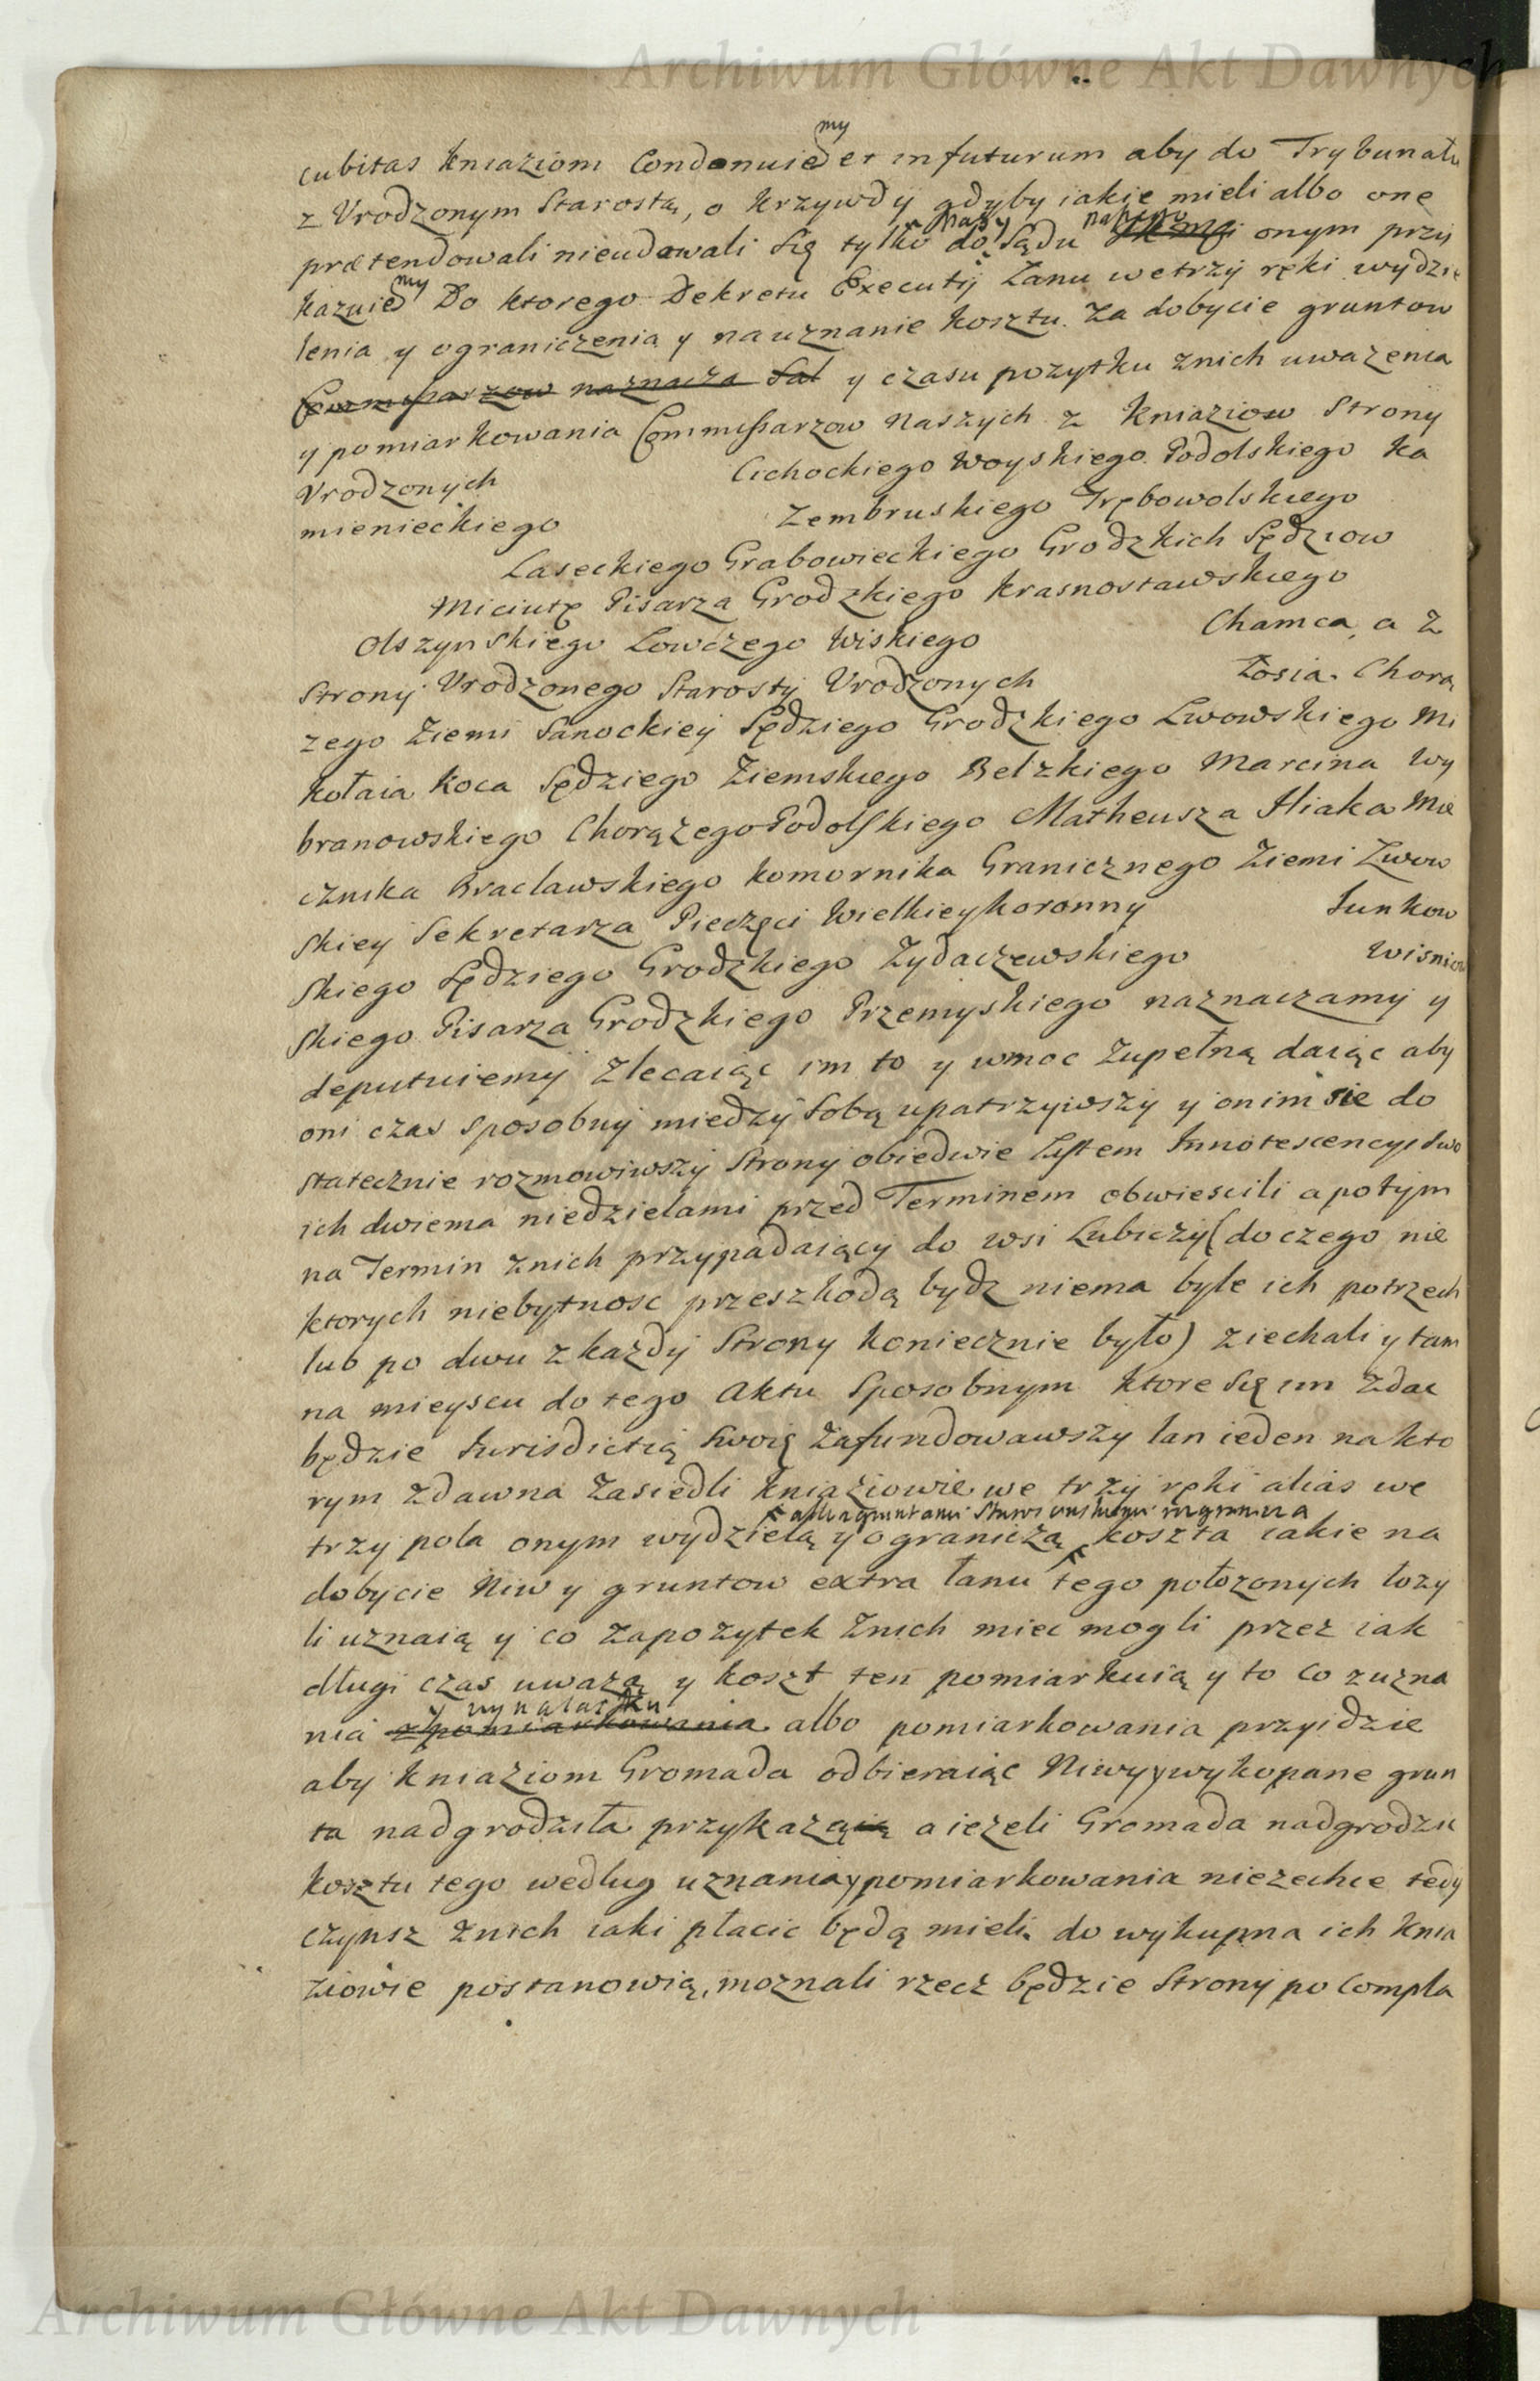 Archiwum Główne Akt Dawnych
my
cubitas kniaziom Condonuie et in futurum aby do Trybunału
z Vrodzonym Starostą, o krzywdy gdyby iakie mieli albo one
praetendowali nieudawali się tylko do Sądu onym przy
my
kazuie Do ktorego Dekretu Executij Łanu wetrzy ręki wydzie
lenia y ograniczenia y na uznanie kosztu za dobycie gruntow
Commissarzow naznacza Sal y czasu pozytku znich uwazenia
y pomiarkowania Commissarzow Naszych z kniaziow Strony
Vrodzonych Cichockiego Woyskiego Podolskiego Ka
mienieckiego Zembruskiego Trębowolskiego
Laseckiego Grabowieckiego Grodzkich Sędziow
Miciutę Pisarza Grodzkiego Krasnostawskiego
Olszynskiego Łowczego Wiskiego Chamca, a z
Strony Vrodzonego Starosty Vrodzonych Łosia Chorą
zego Ziemi Sanockiey Sędziego Grodzkiego Lwowskiego Mi
kołaia Koca Sędziego Ziemskiego Belzkiego Marcina Wy
branowskiego Chorązego Podolskiego Matheusza Iliaka Mie
cznika Braclawskiego Komornika Granicznego Ziemi Lwow
skiey Sekretarza Pieczęci Wielkiey koronny Junkow
skiego Sędziego Grodzkiego Zydaczewskiego Wisniow
skiego Pisarza Grodzkiego Przemyskiego naznaczamy y
deputuiemy zlecaiąc im to y wmoc zupełną daiąc aby
oni czas sposobny miedzy sobą upatrzywszy y onim sie do
statecznie rozmowiwszy Strony obiedwie Listem Innotescencyi swo
ich dwiema niedzielami przed Terminem obwiescili a potym
na Termin znich przypadaiący do wsi Lubiczy (do czego nie
ktorych niebytnosc przeszkodą bydz niema byle ich potrzech
lub po dwu z kazdy Strony koniecznie było) ziechali y tam
na mieyscu do tego Aktu Sposobnym ktore się im zdac
będzie Jurisdictią swoię zafundowawszy łan ieden na kto
rym zdawna zasiedli kniaziowie we trzy ręki alias we
trzy pola onym wydzielą y ograniczą koszta iakie na
dobycie Niw y gruntow extra łanu tego położonych łozy
li uznaią y co zapozytek znich miec mogli przez iak
długi czas uwazą y koszt ten pomiarkuią y to co z uzna
y wynalasku
nia z pomiarkowania albo pomiarkowania przyidzie
aby kniaziom Gromada odbieraiąc Niwy y wykopane grun
ta nadgrodziła przykazą a iezeli Gromada nadgrodzic
kosztu tego według uznania y pomiarkowania niezechce tedy
czynsz znich iaki płacic będą mieli do wykupna ich knia
ziowie postanowią, moznali rzecz będzie Strony po Compla
Archiwum Główne Akt Dawnych